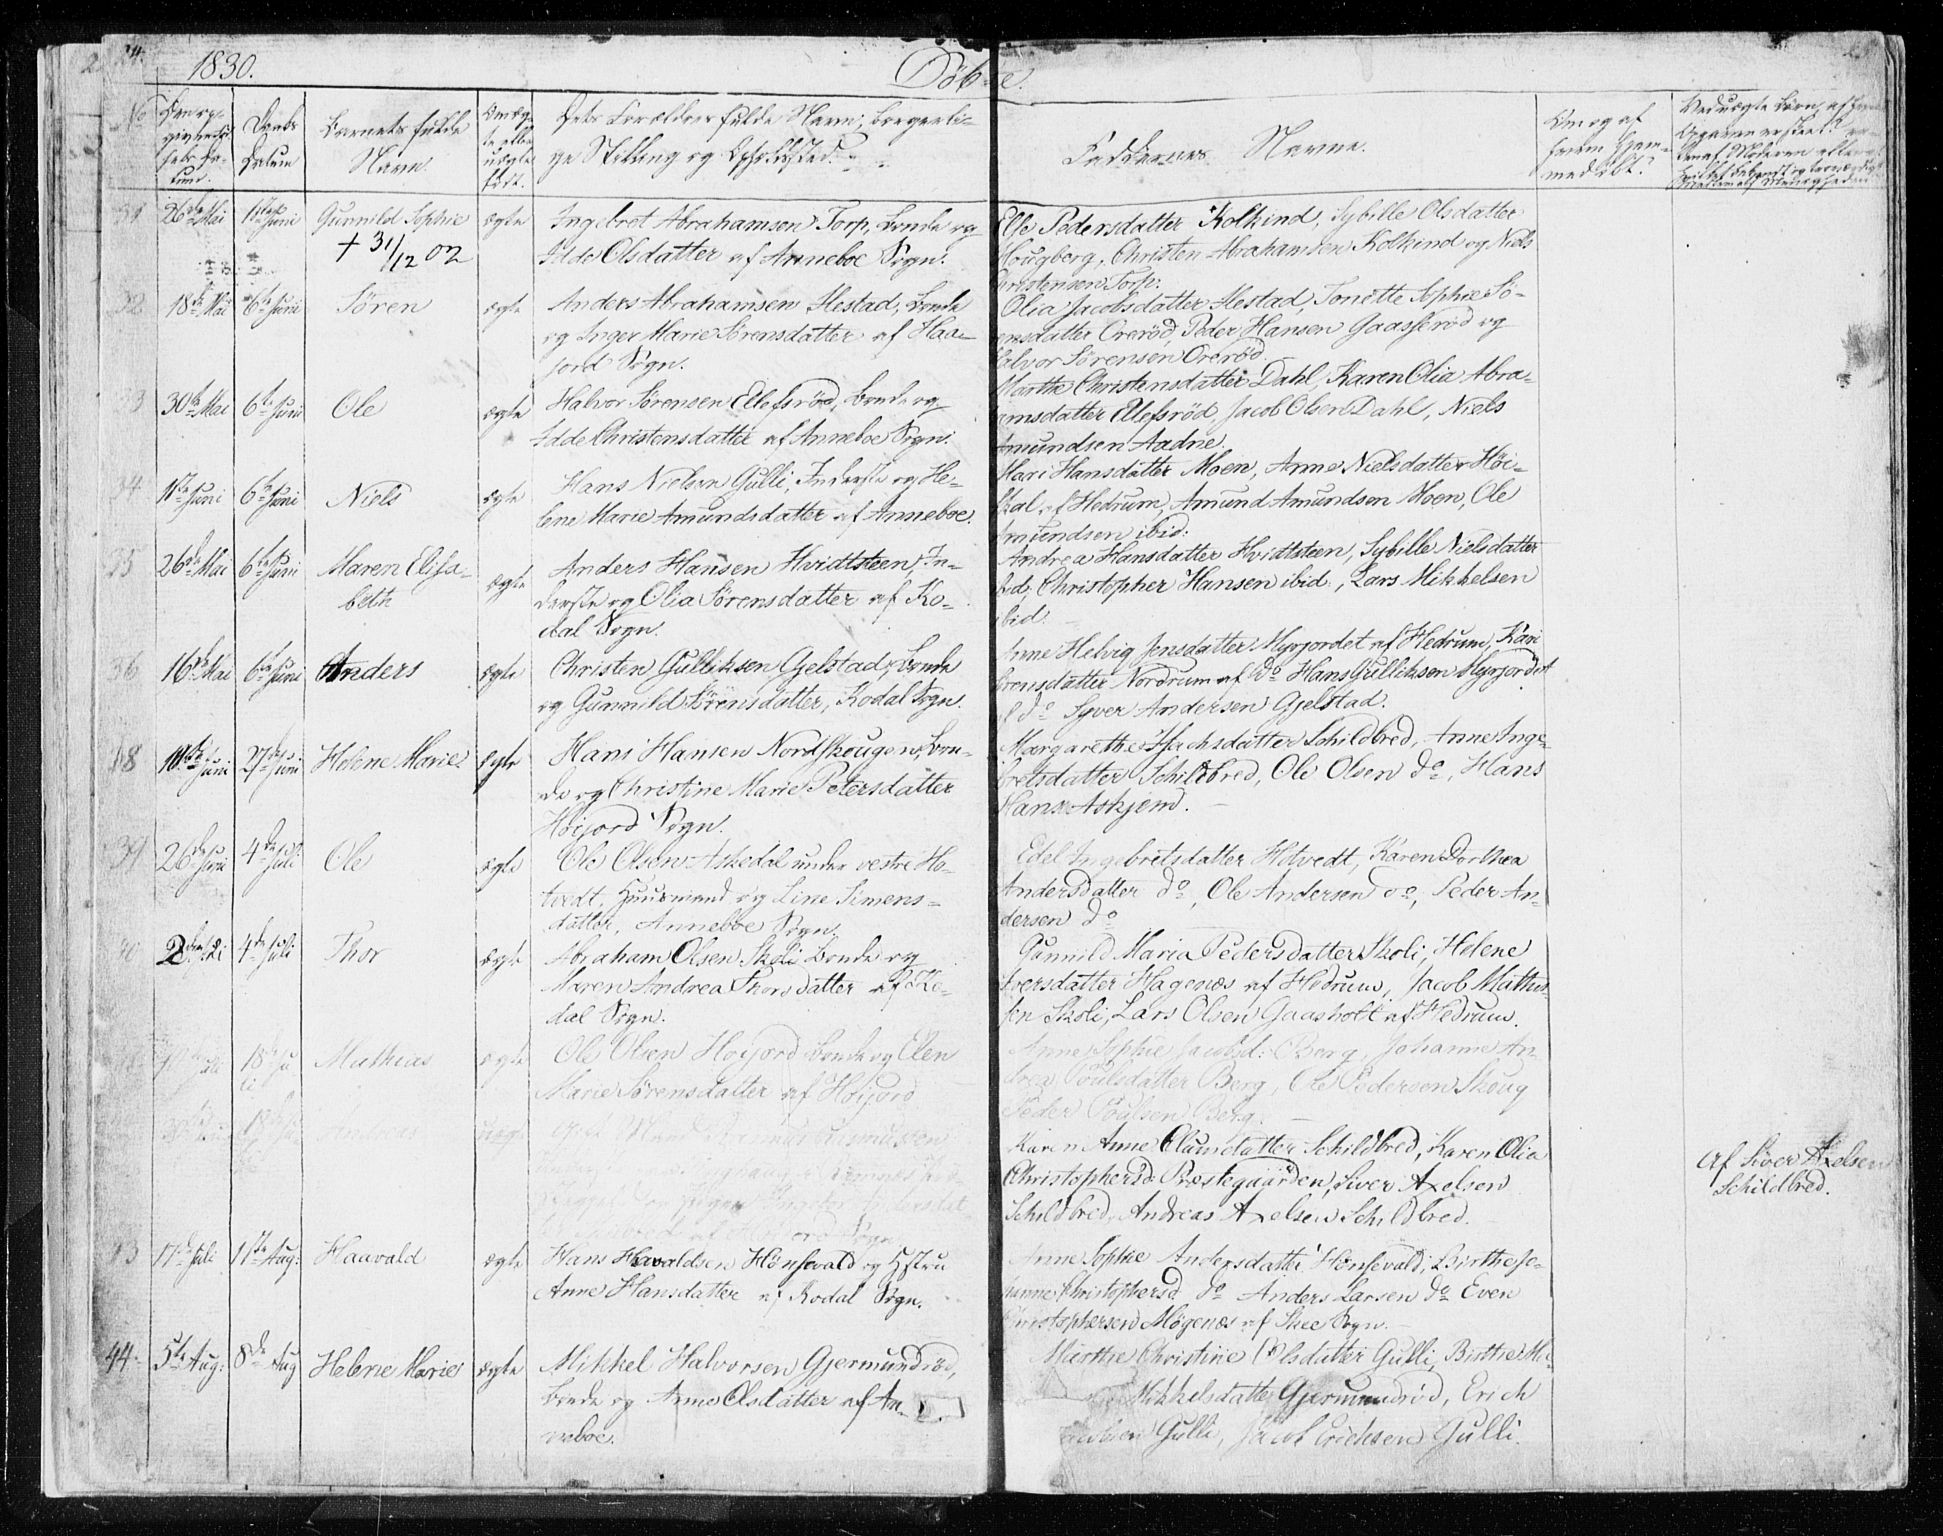 1830.
Döbte.
No
Dens
Datum
Barnets fulde
Navn.
Dets Forældres fulde Navn, borgerli-
ge Stilling og Opholdssted.
Faddernes Navne.
31 26de Mai 1ste Juni Gunnild Sophie ægte Ingebret Abrahamsen Torp, Bonde og
+ 31/12 02 Idde Olsdatter af Anneboe Sogn.
Elle Pedersdatter Kolkind, Sybille Olsdatter
Hougberg, Christen Abrahamsen Kolkind og Niels
Christensen Torp.
32 18de Mai 6te Juni Sören ægte Anders Abrahamsen Hestad, Bonde
og Inger Marie Sörensdatter af Haa-
jord Sogn.
Olia Jacobsdatter Hestad, Tonette Sophie Sö-
rensdatter Orerød, Peder Hansen Gaasserød og
Halvor Sörensen Orerød.
33 30te Mai 6te Juni Ole ægte Halvor Sørensen Ellefsröd, Bonde og
Idde Christensdatter af Anneboe Sogn.
Marthe Christensdatter Dahl, Karen Olia Abra-
hamsdatter Ellefsröd, Jacob Olsen Dahl, Niels
Amundsen Aadne.
34 1ste Juni 6te Juni Niels ægte Hans Nielsen Gulli, Inderste og He-
lene Marie Amundsdatter af Anneboe.
Mari Hansdatter Moen, Anne Nielsdatter Höi-
skal af Hedrum, Amund Amundsen Moen, Ole
Amundsen ibid.
35 26de Mai 6te Juni Maren Elisa-
beth ægte Anders Hansen Hvidtsteen, In-
derste og Olia Sörensdatter af Ko-
dal Sogn.
Andrea Hansdatter Hvidtsteen, Sybille Nielsdatter
ibid, Christopher Hansen ibid., Lars Mikkelsen
ibid.
36 16de Mai 6te Juni Anders ægte Christen Gulliksen Gjelstad, Bonde
og Gunnild Sörensdatter, Kodal Sogn.
Anne Helvig Jensdatter Myrjordet af Hedrum, Kari
Sörensdatter Nordrum af Do Hans Gulliksen Myrjordet
af do Syver Andersen Gjelstad.
38 Juni 27de Juni Helene Marie ægte Hans Hansen Nordskougen, Bon-
de og Christine Marie Petersdatter
Höijord Sogn.
Margarethe Isachsdatter Schildbred, Anne Inge-
bretsdatter Schildbred, Ole Olsen do, Hans
Hansen Askjem.
39 26de Juni 4de Juli Ole ægte Ole Olsen Askedal under vestre Ho-
tvedt, Huusmand og Line Simens-
datter, Anneboe Sogn.
Edel Ingebretsdatter Hotvedt, Karen Dorthea
Andersdatter do, Ole Andersen do, Peder An-
dersen do
40 2den Juli 4de Juli Thor ægte Abraham Olsen Skoli Bonde og
Maren Andrea Thorsdatter af Ko-
dal Sogn.
Gunnild Maria Pedersdatter Skoli, Helene
Iversdatter Hagenæs af Hedrum, Jacob Mathis-
sen Skoli, Lars Olsen Gaasholt af Hedrum.
Juli 18de Ju-
li Mathias ægte Ole Olsen Hoijord Bonde og Elen
Marie Sörensdatter af Höijord
Anne Sophie Jacobsd: Berg, Johanne An-
drea Poulsdatter Berg, Ole Pedersen Skoug
Peder Poulsen Berg.
Andreas uægte
Karen Anne Clausdatter Schildbred, Karen Olia
Christophersd: Præstegaarden, Siver Axelsen
Schildbred, Andreas Axelsen Schildbred.
Af Siver Axelsen
Schildbred.
43 17de Juli 1ste Aug: Haavald ægte Hans Havaldsen Hönsevald og Hstru
Anne Hansdatter af Kodal Sogn.
Anne Sophie Andersdatter Hönsevald, Birthe Jo-
hanne Christophersd do Anders Larsen do Even
Christophersen Mögenæs af Skee Sogn.
44 5te Aug: 8de Aug Helene Marie ægte Mikkel Halvorsen Gjermundröd,
Bonde og Anne Olsdatter af An-
neboe.
Marthe Christine Olsdatter Gulli, Birthe Ma-
Mikkelsdatter Gjermundröd, Erich
Gulli, Jacob Erichsen Gulli.